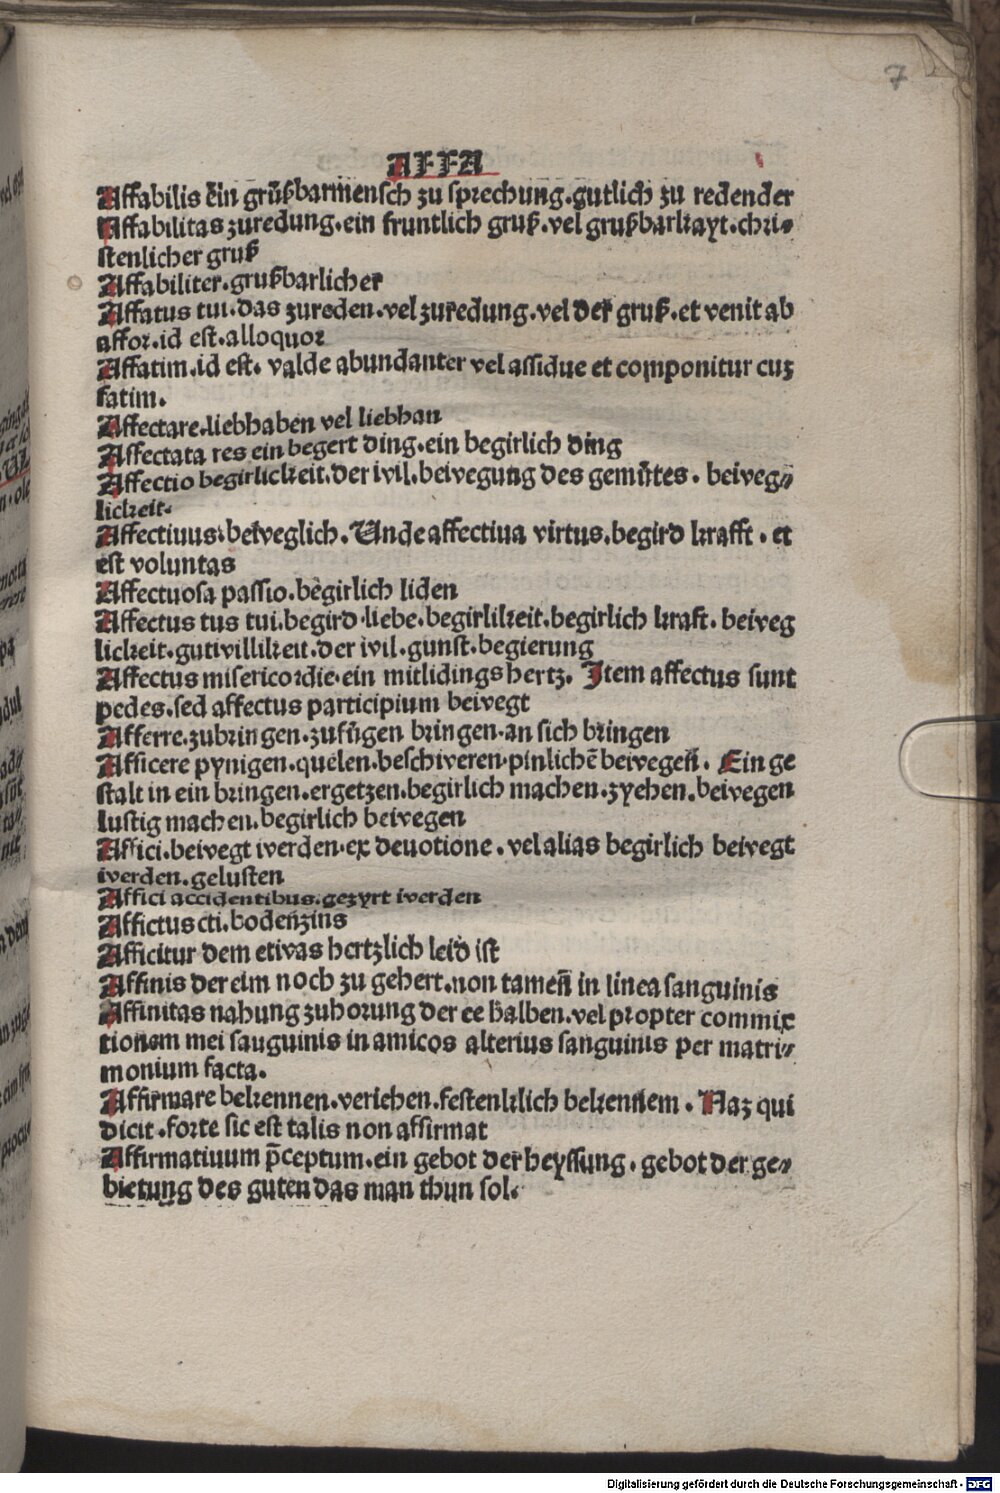 7
AFFA
Affabilis ein grůßbarmensch zu sprechung.gutlich zu redender
Affabilitas zuredung.ein fruntlich gruß.vel grußbarkayt.chri-
stenlicher gruß
Affabiliter.grußbarlicher
Affatus tui.das zureden.vel zuredung.vel der gruß.et venit ab
affor.id est.alloquor
Affatim.id est. valde abundanter vel assidue et componitur cuz
fatim.
Affectare.liebhaben vel liebhan
Affectata res ein begert ding.ein begirlich ding
Affectio begirlickeit.der wil.bewegung des gemůtes. beweg-
lickeit.
Affectiuus.beweglich. Unde affectiua virtus.begird krafft. et
est voluntas
Affectuosa passio.begirlich liden
Affectus tus tui.begird.liebe.begirlikeit.begirlich kraft. beweg
lickeit.gutwillikeit.der wil.gunst.begierung
Affectus misericordie.ein mitlidings hertz. Item affectus sunt
pedes.sed affectus participium bewegt
Afferre.zubringen.zufůgen bringen.an sich bringen
Afficere pynigen.quelen.beschweren.pinlichē bewegen̄. Ein ge
stalt in ein bringen.ergetzen.begirlich machen.zyehen.bewegen
lustig machen.begirlich bewegen
Affici.bewegt werden.ex deuotione.vel alias begirlich bewegt
werden.gelusten
Affici accidentibus.gezyrt werden
Affictus cti.bodenzins
Afficitur dem etwas hertzlich leid ist
Affinis der eim noch zu gehert.non tamen̄ in linea sanguinis
Affinitas nahung zuhorung der ee halben.vel propter commix
tionem mei sauguinis in amicos alterius sanguinis per matri-
monium facta.
Affirmare bekennen.veriehen.festenklich bekennem. Naz qui
dicit.forte sic est talis non affirmat
Affirmatiuum p̄ceptum.ein gebot der heyssung.gebot der ge-
bietung des guten das man thun sol.
Digitalisierung gefördert durch die Deutsche Forschungsgemeinschaft - DFG